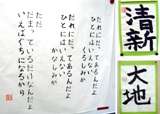 清新
大地
だれにだってあるんだよ
ひとにはいえないくるしみが
だれにだってあるんだよ
ひとにはいえないかなしみが
ただ
だまっているだけなんだよ
いえばぐちになるから